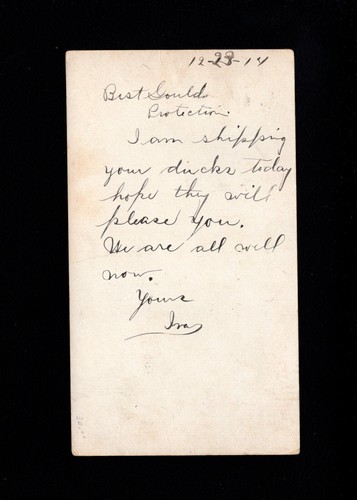 12-23-14
Best Gould
Protection.
I am shipping
your ducks today
hope they will
please you.
We are all well
now.
Yours
Ira